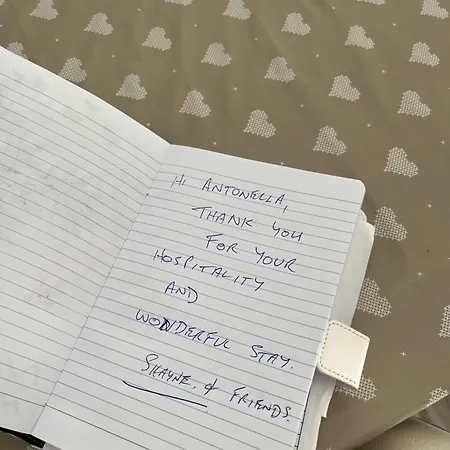 HI ANTONELLA,
THANK YOU
FOR YOUR
HOSPITALITY
AND
WONDERFUL STAY.
SHAYNE & FRIENDS.